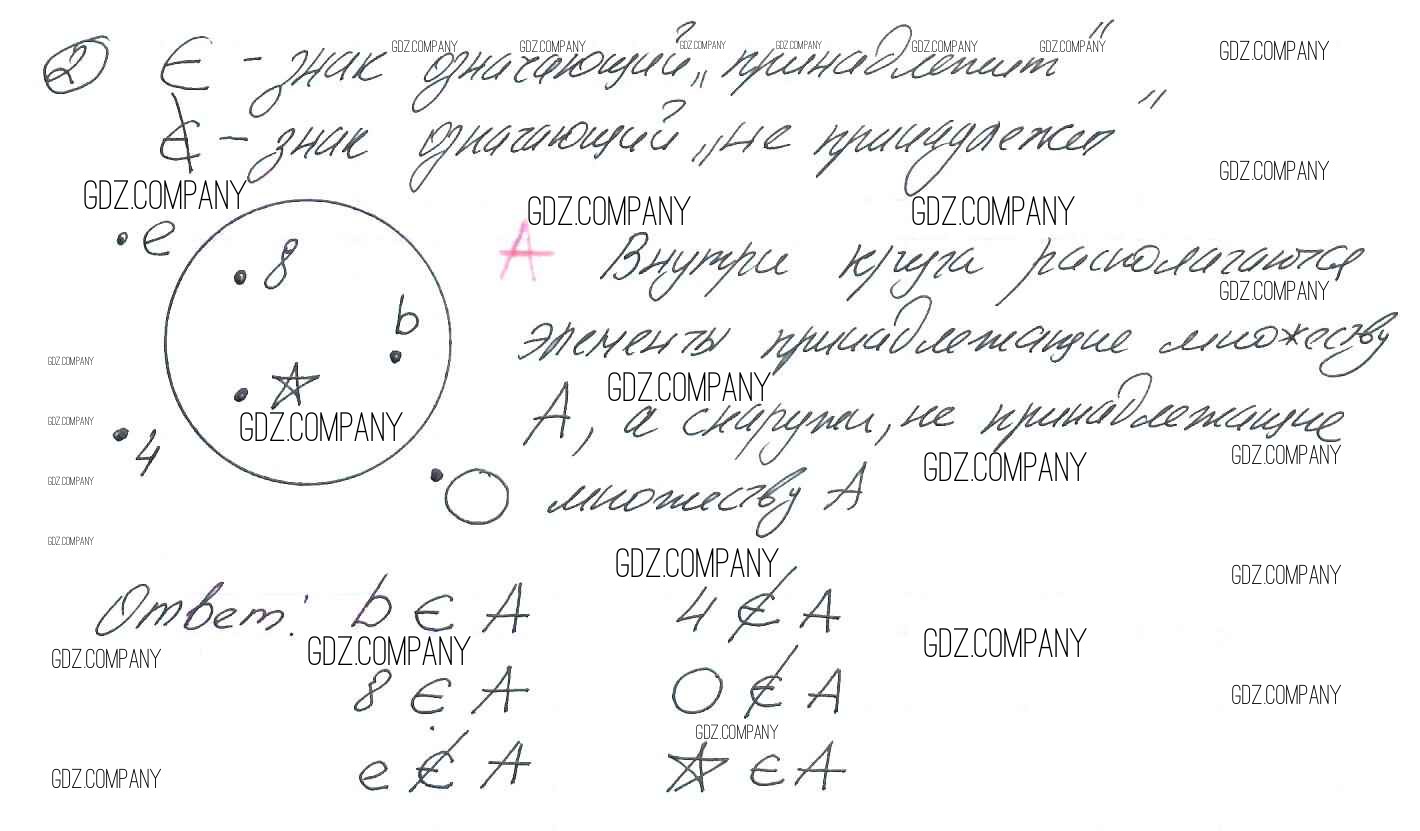 ② ∈ - знак означающий „принадлежит"
∉ - знак означающий „не принадлежит"
GDZ.COMPANY GDZ.COMPANY GDZ.COMPANY GDZ.COMPANY GDZ.COMPANY GDZ.COMPANY GDZ.COMPANY
GDZ.COMPANY
GDZ.COMPANY GDZ.COMPANY GDZ.COMPANY
e
8
b
☆
4
○
A Внутри круга располагаются
GDZ.COMPANY
элементы принадлежащие множеству
GDZ.COMPANY GDZ.COMPANY
A, а снаружи, не принадлежащие
GDZ.COMPANY GDZ.COMPANY GDZ.COMPANY GDZ.COMPANY
множеству A
GDZ.COMPANY
GDZ.COMPANY
GDZ.COMPANY GDZ.COMPANY
Ответ: b ∈ A 4 ∉ A
GDZ.COMPANY GDZ.COMPANY GDZ.COMPANY
8 ∈ A ○ ∉ A
GDZ.COMPANY GDZ.COMPANY
e ∉ A ☆ ∈ A
GDZ.COMPANY